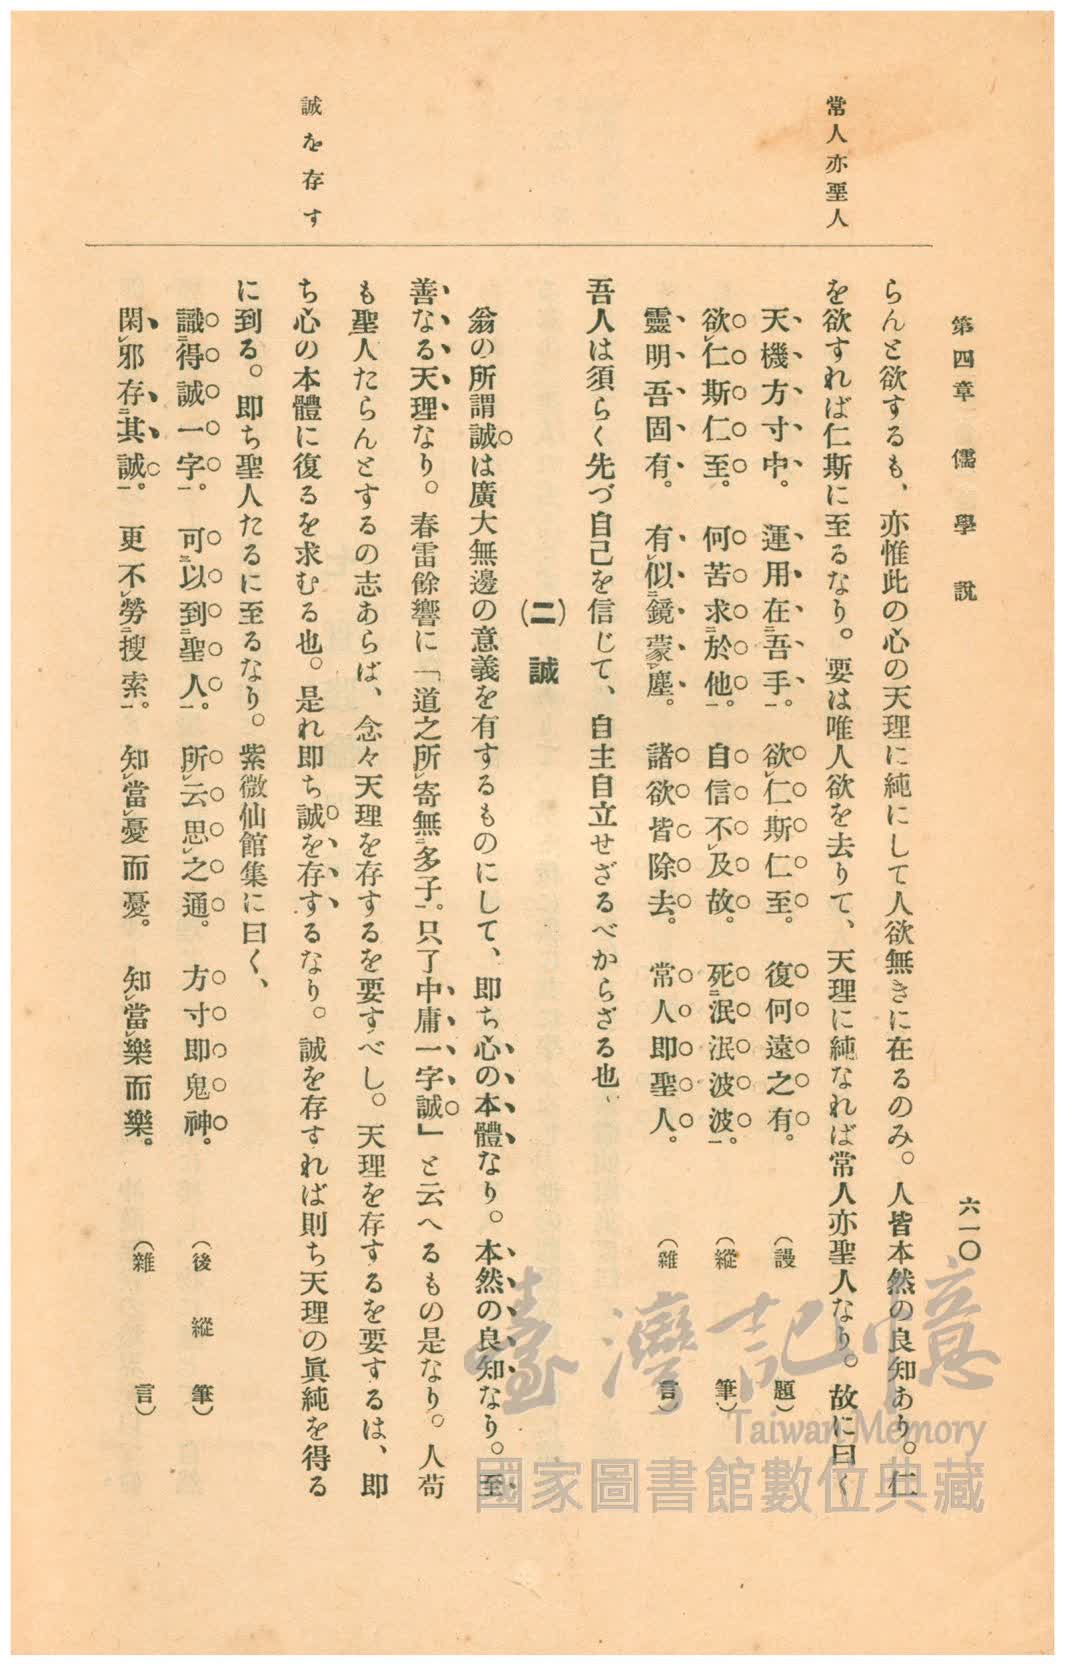 第四章 儒學說 六一〇
常人亦聖人
らんと欲するも、亦惟此の心の天理に純にして人欲無きに在るのみ。人皆本然の良知あり。仁
を欲すれば仁斯に至るなり。要は唯人欲を去りて、天理に純なれば常人亦聖人なり。故に曰く
天機方寸中。 運用在二吾手一。 欲レ仁斯仁至。 復何遠之有。 (謾題)
欲レ仁斯仁至。 何苦求二於他一。 自信不レ及故。 死二泯泯波波一。 (縱筆)
靈明吾固有。 有レ似二鏡蒙一レ塵。 諸欲皆除去。 常人即聖人。 (雜言)
吾人は須らく先づ自己を信じて、自主自立せざるべからざる也。
(二) 誠
翁の所謂誠は廣大無邊の意義を有するものにして、即ち心の本體なり。本然の良知なり。至
善なる天理なり。春雷餘響に「道之所レ寄無二多子一。只了中庸一字誠」と云へるもの是なり。人苟
も聖人たらんとするの志あらば、念々天理を存するを要すべし。天理を存するを要するは、即
誠を存す
ち心の本體に復るを求むる也。是れ即ち誠を存するなり。誠を存すれば則ち天理の眞純を得る
に到る。即ち聖人たるに至るなり。紫微仙館集に曰く、
識二得誠一字一。 可三以到二聖人一。 所レ云思レ之通。 方寸即鬼神。 (後縱筆)
閑レ邪存二其誠一。 更不レ勞二搜索一。 知レ當レ憂而憂。 知レ當レ樂而樂。 (雜言)
臺灣記憶
Taiwan Memory
國家圖書館數位典藏